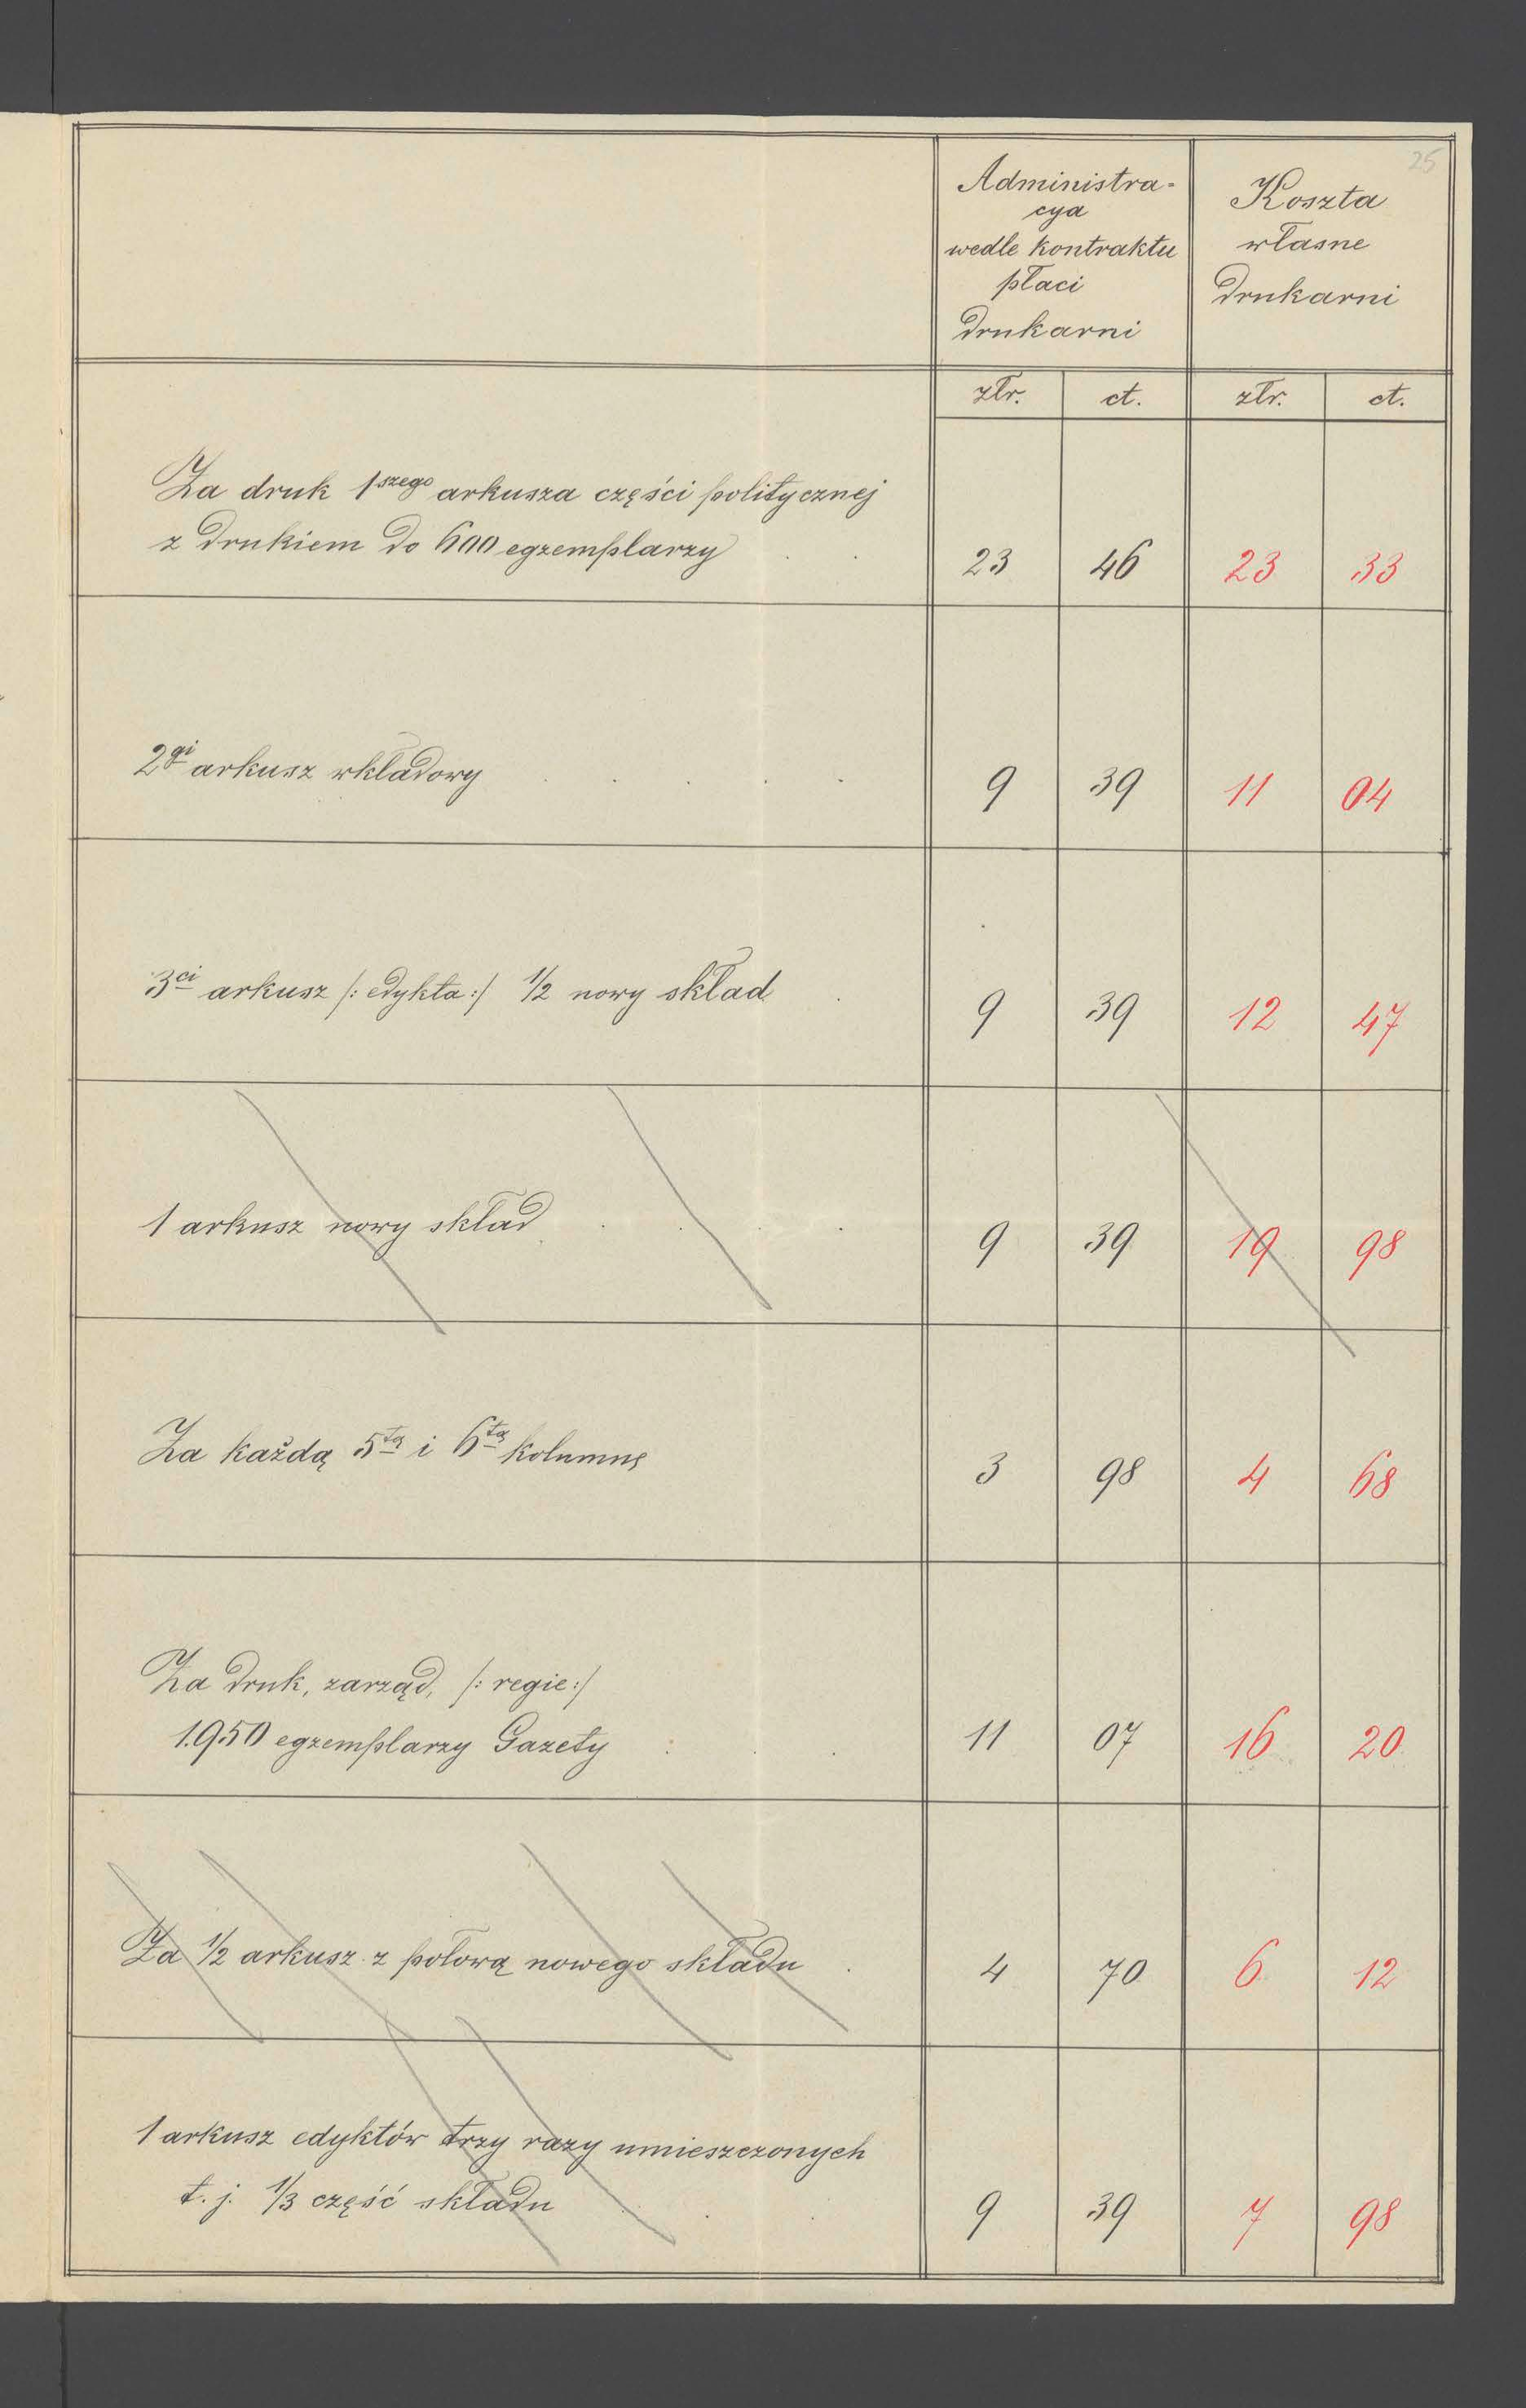 25
Administra-
cya
wedle kontraktu
płaci
drukarni
Koszta
własne
drukarni
złr. ct. złr. ct.
Za druk 1szego arkusza części politycznej
z drukiem do 600 egzemplarzy . . 23 46 23 33
2gi arkusz wkładowy . . . . . 9 39 11 04
3ci arkusz /: edykta :/ 1/2 nowy skład . 9 39 12 47
1 arkusz nowy skład . . . . 9 39 19 98
Za każdą 5tą i 6tą kolumnę 3 98 4 68
Za druk, zarząd, /: regie :/
1950 egzemplarzy Gazety . . . 11 07 16 20
Za 1/2 arkusz z połową nowego składu . 4 70 6 12
1 arkusz edyktów trzy razy umieszczonych
t. j. 1/3 część składu . . . 9 39 7 98